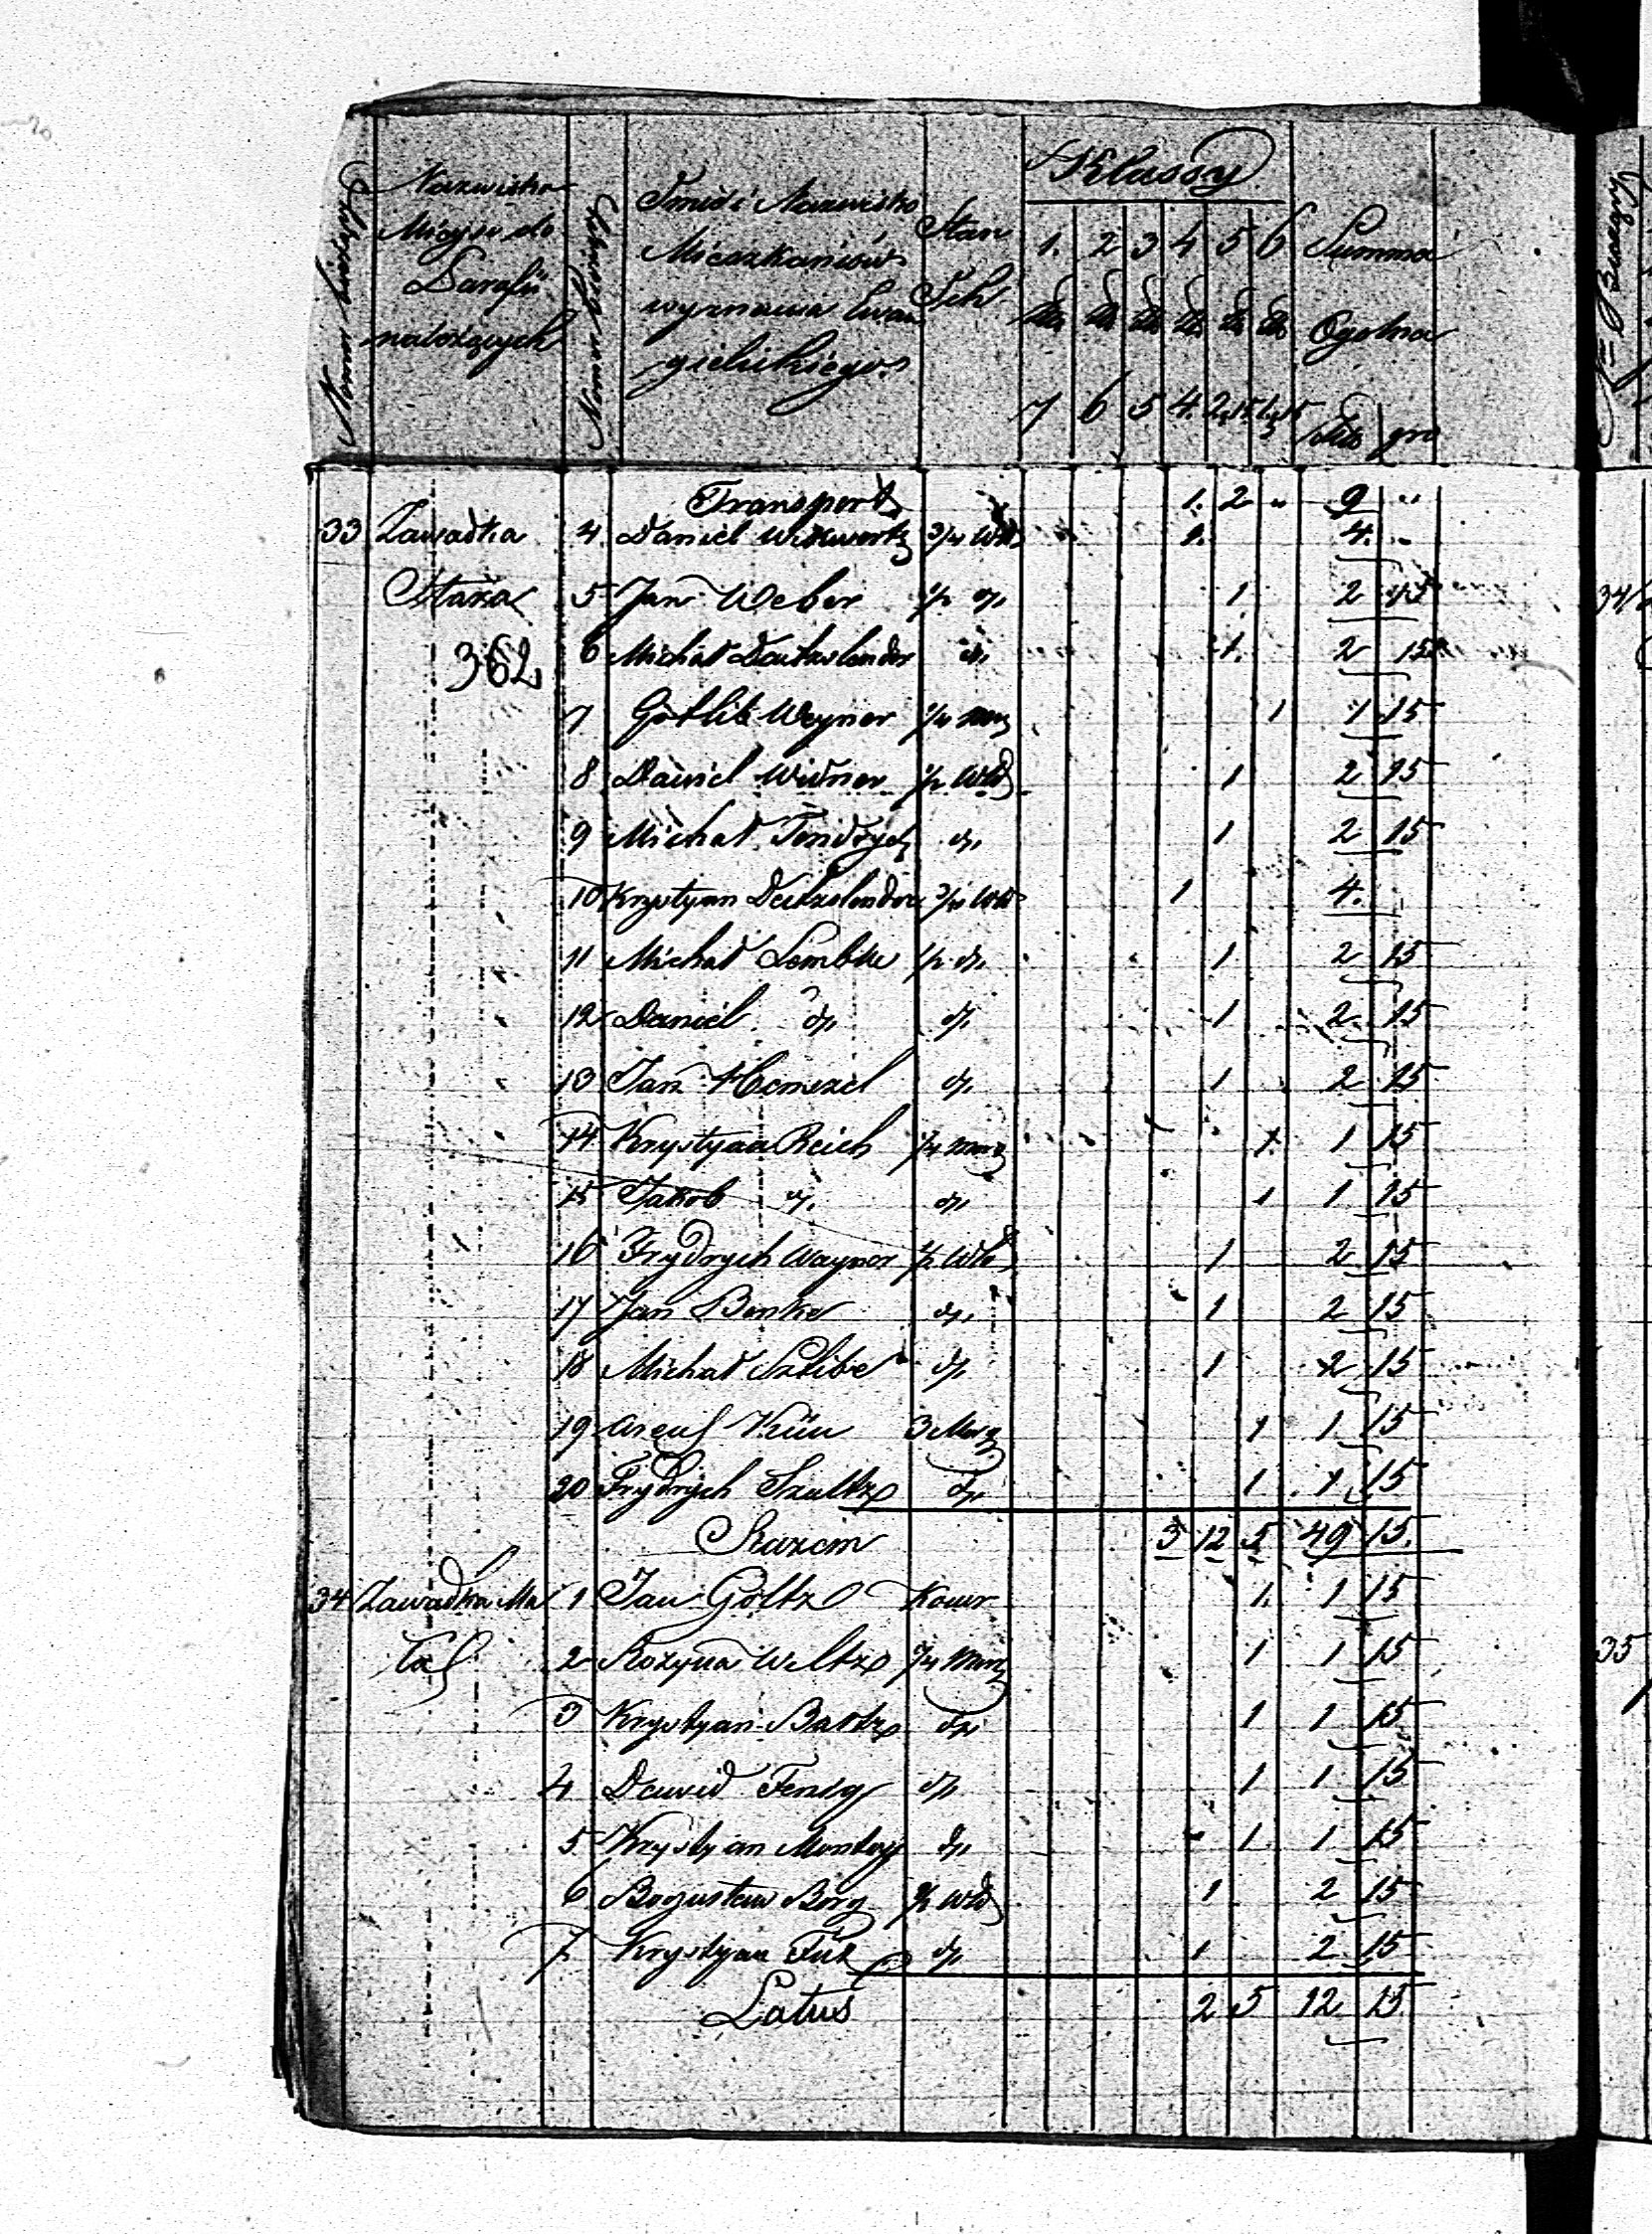 Numer bieżący
Nazwiska
Mieysc do
Parafii
należących
Numer bieżący
Imie i Nazwisko
Mieszkańców
wyznania Ewan
gielickiego
Stan
Ich
Klassy
1. 2 3 4 5 6
7 6 5 4. 2.15 1.15
Summa
Ogolna
gro
Transport 1. 2 " 9 "
33 Zawadka 4. Daniel 3/4 Wł 1. 4. "
Stara 5 Jan Weber 1/2 do 1 2 15
362
6 Michał Deutzlender do 1. 2 15
7 Gotlib Weyner 1/4 Morg 1 1 15
8 Daniel Widner 1/2 Wł 1 2 15
9 Michał do 1 2 15
10 Krystyan Deutzlender 3/4 Wł 1 4.
11 Michał Lembke 1/2 do 1 2 15
12 Daniel do do 1 2 15
13 Jan do 1 2 15
14 Krystyan Reich 1/4 Morg 1. 1 15
15 Jakob do do 1 1 15
16 Frydrych Wayner 1/2 Wł 1 2 15
17 Jan Benke do 1 2 15
18 Michał do 1 2 15
19 Kün 3 Morg 1 1 15
20 Frydrych Szultz do 1 1 15
Razem 3 12 5 49 15.
34 Zawadka Ma 1 Jan Göltz Komr 1. 1 15
ła 2 Rozyna Weltz 3/4 Morg 1 1 15
3 Krystyan Bartz do 1 1 15
4 Dawid do 1 1 15
5. Krystyan do 1 1 15
6 Bogusław Borg 1/2 Wł 1 2 15
7. Krystyan do 1 2 15
Latus 2 5 12 15
Nr Bieżący
34
35